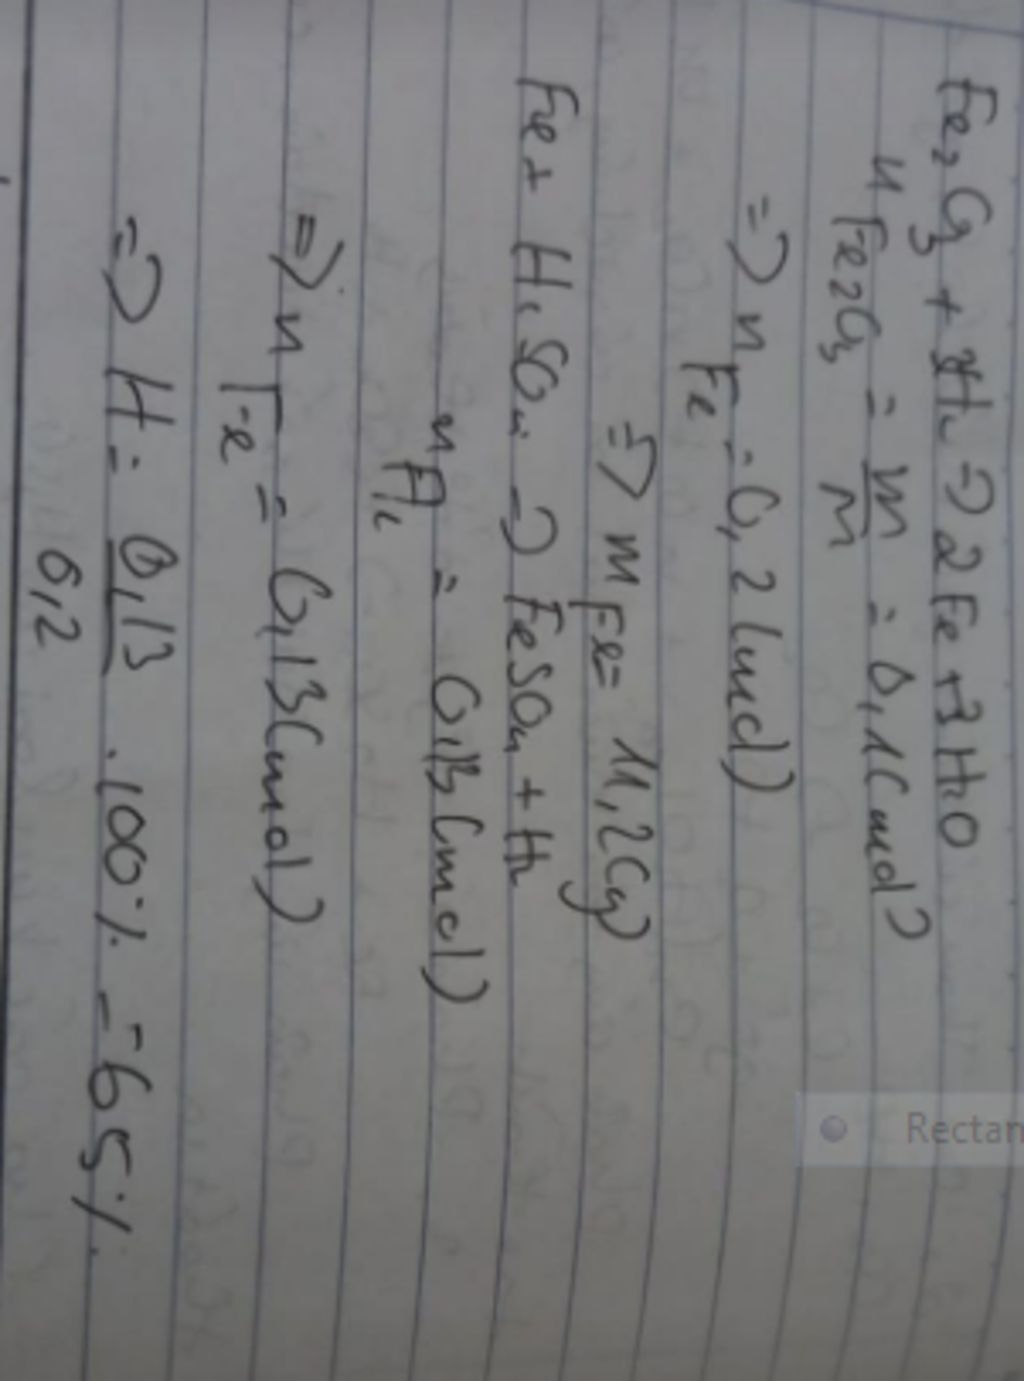 Fe2O3 + 3H2 => 2Fe + 3H2O
nFe2O3 = m/M = 0,1(mol)
=> nFe = 0,2(mol)
=> mFe = 11,2(g)
Fe + H2SO4 => FeSO4 + H2
nH2 = 0,13(mol)
=> nFe = 0,13(mol)
=> H = 0,13/0,2 .100% = 65%
Rectan